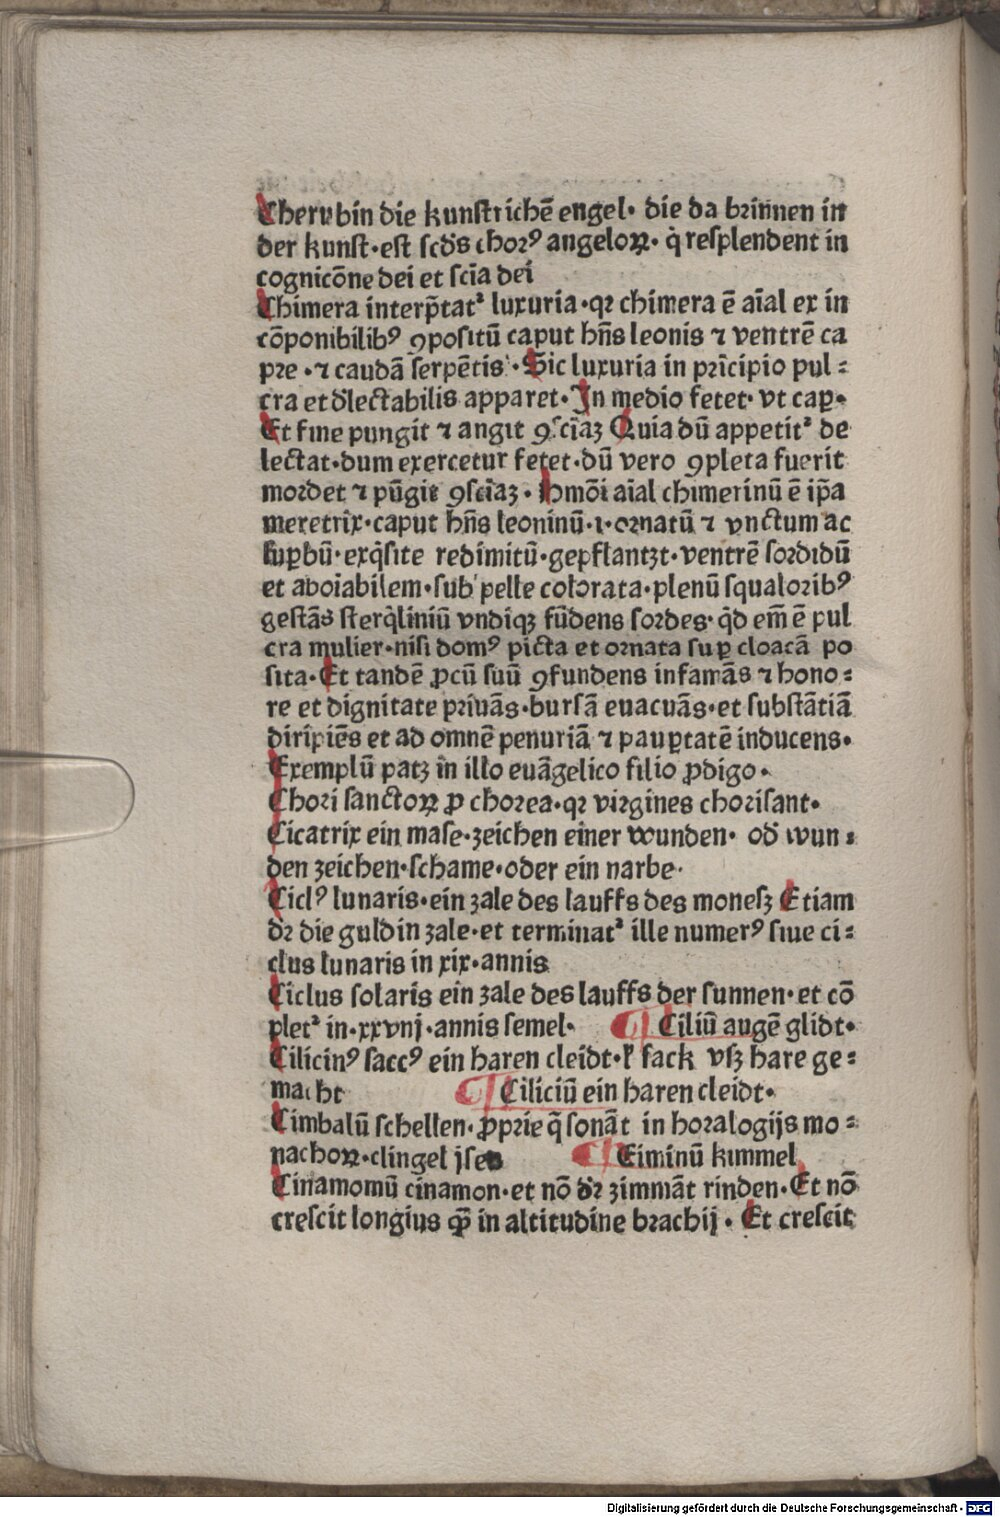 Cherubin die kunstrichē engel· die da brinnen in
der kunst·est scd̄s chorꝰ angeloꝝ· q̇ resplendent in
cognicōne dei et scīa dei
Chimera interp̄tatᷣ luxuria·qꝛ chimera ē aīal ex in
cōponibilibꝰ ꝯpositū caput hn̄s leonis ⁊ ventrē ca
pre·⁊ caudā serpētis·Sic luxuria in prīcipio pul⸗
cra et delectabilis apparet·In medio fetet·vt cap̱·
Et fine pungit ⁊ angit ꝯscīaꝫ Quia dū appetitᷣ de
lectat·dum exercetur fetet·dū vero ꝯpleta fuerit
mordet ⁊ pūgit ꝯscīaꝫ·hmōi aīal chimerinū ē ip̄a
meretrix·caput hn̄s leoninū·i·ornatū ⁊ vnctum ac
suꝑbū·exq̇site redimitū·gepflantzt·ventrē sordidū
et aboīabilem·sub pelle colorata·plenū squaloribꝰ
gestās sterq̇liniū vndiqꝫ fūdens sordes·q̇d em̄ ē pul
cra mulier·nisi domꝰ picta et ornata suꝑ cloacā po
sita·Et tandē ꝓcū suū ꝯfundens infamās ⁊ hono⸗
re et dignitate priuās·bursā euacuās·et substātiā
diripiēs et ad omnē penuriā ⁊ pauꝑtatē inducens·
Exemplū patꝫ in illo euāgelico filio ꝓdigo·
Chori sanctoꝝ ꝓ chorea·qꝛ virgines chorisant·
Cicatrix ein mase·zeichen einer wunden· od̄ wun⸗
den zeichen·schame·oder ein narbe·
Ciclꝰ lunaris·ein zale des lauffs des monesz Etiam
dꝛ die guldin zale·et terminatᷣ ille numerꝰ siue ci⸗
clus lunaris in xix·annis
Ciclus solaris ein zale des lauffs der sunnen·et cō
pletᷣ in·xxvnj·annis semel· ¶ Ciliū augē glidt·
Cilicinꝰ saccꝰ ein haren cleidt·ł sack vsz hare ge⸗
macht ¶ Ciliciū ein haren cleidt·
Cimbalū schellen·ꝓprie q̄ sonāt in horalogijs mo⸗
nachoꝝ·clingel jsen ¶ Eiminū kimmel
Cinamomū cinamon·et nō dꝛ zimmāt rinden·Et nō
crescit longius q̄ in altitudine brachij· Et crescit
Digitalisierung gefördert durch die Deutsche Forschungsgemeinschaft - DFG